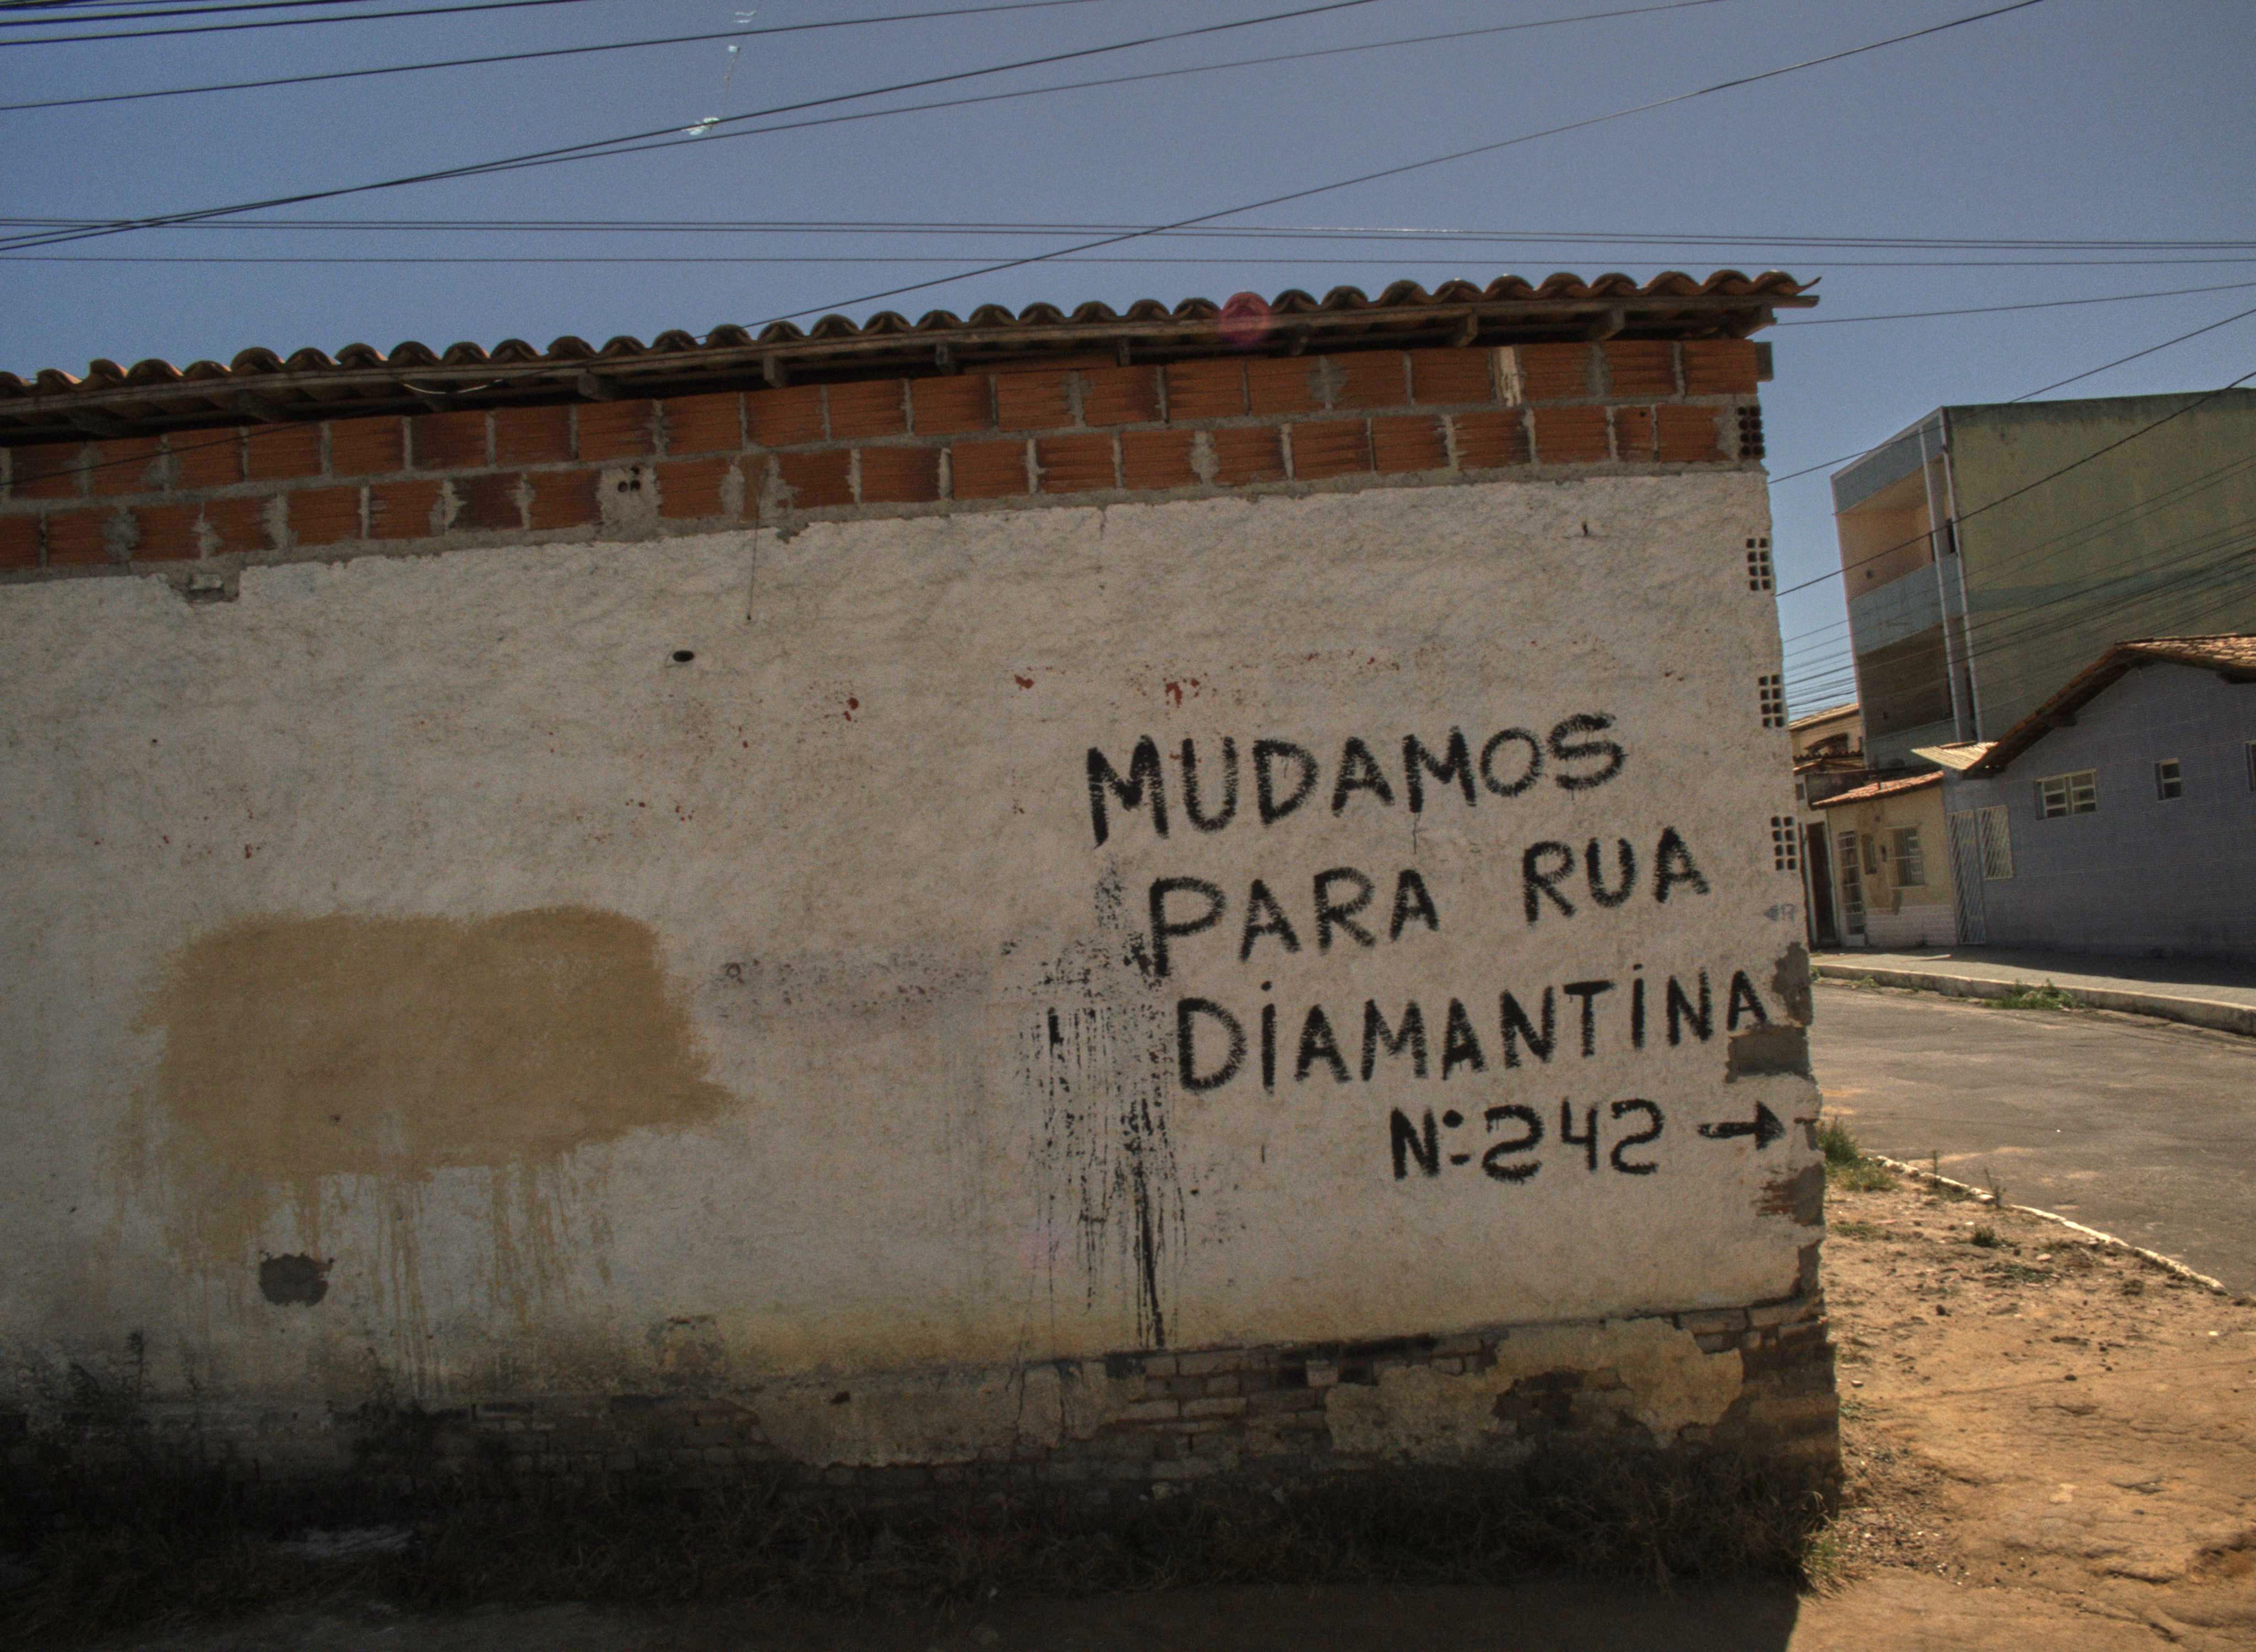 MUDAMOS
PARA RUA
DIAMANTINA
Nº 242 →